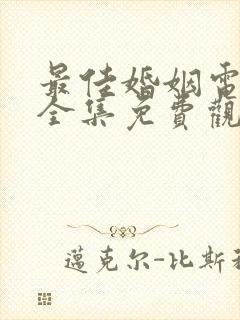 最佳婚姻電
全集免費觀
邁克尔-比斯